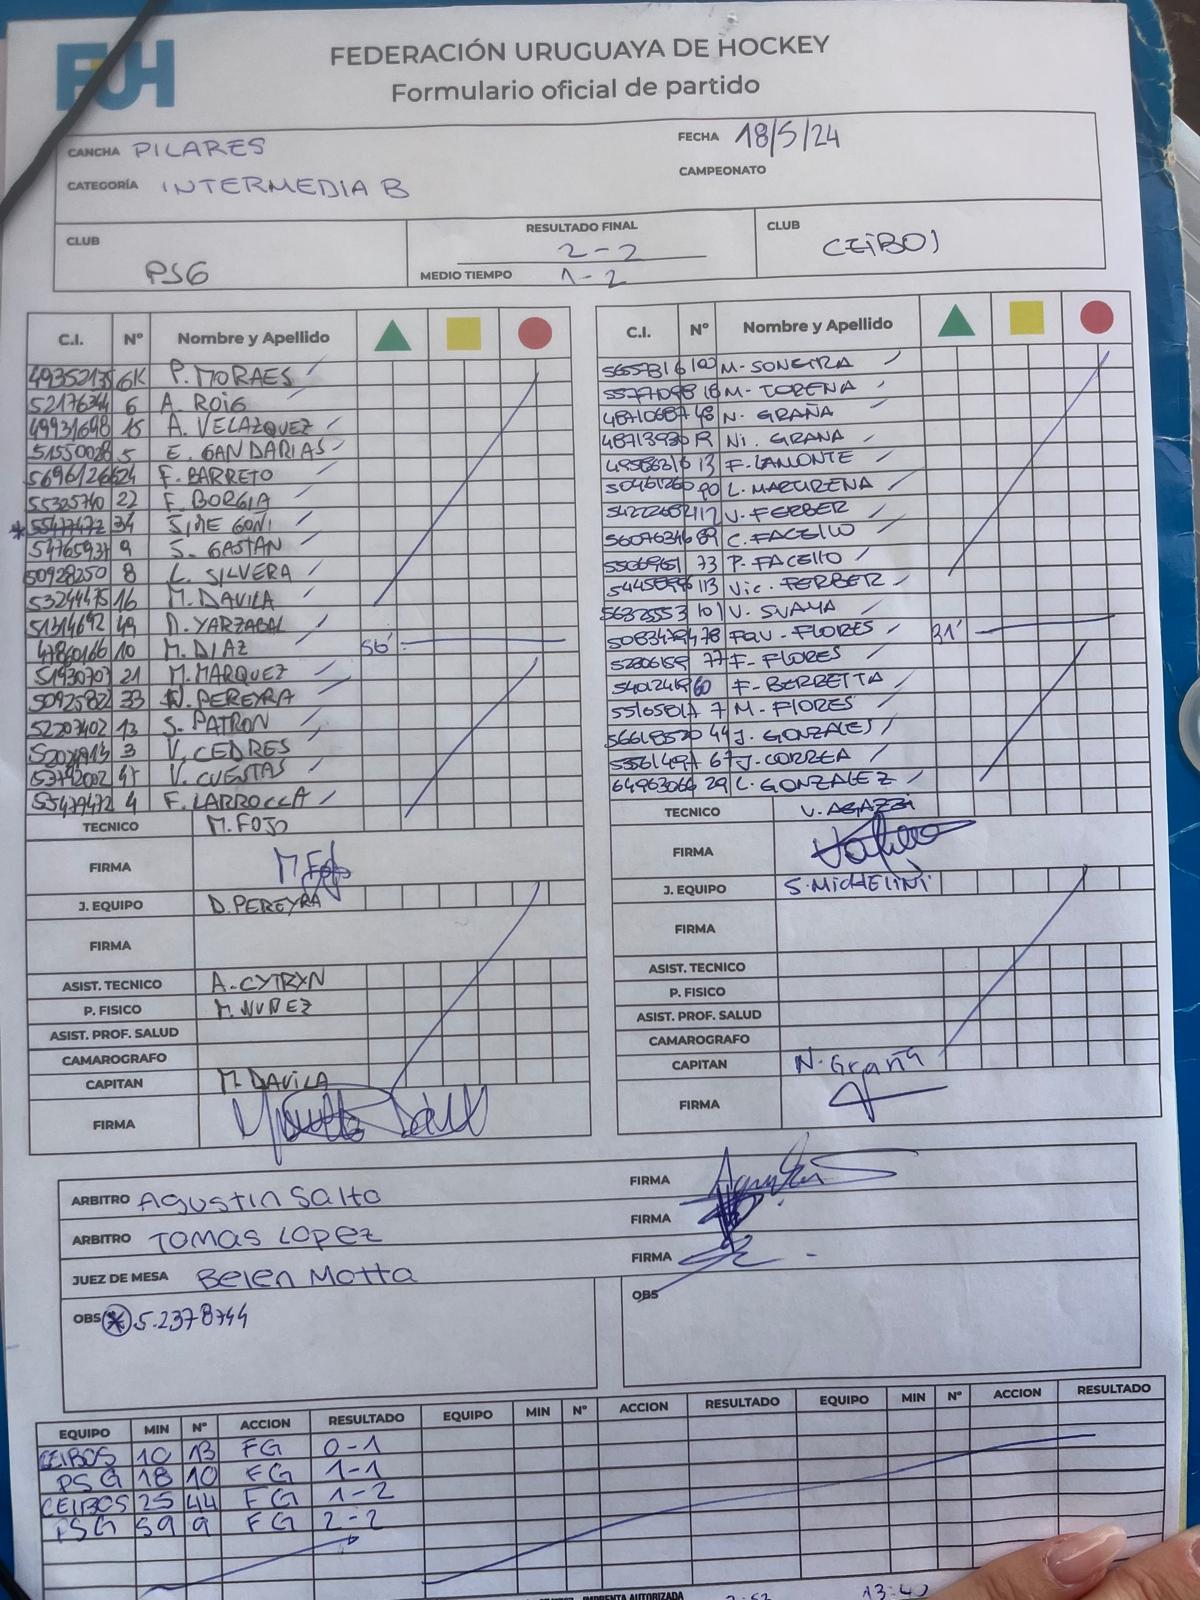 FUH
FEDERACIÓN URUGUAYA DE HOCKEY
Formulario oficial de partido
CANCHA PILARES
FECHA 18/5/24
CATEGORÍA INTERMEDIA B
CAMPEONATO
CLUB PSG
RESULTADO FINAL 2-2
MEDIO TIEMPO 1-2
CLUB CEIBOS
C.I. Nº Nombre y Apellido
49352135 GK P. MORAES
52176344 6 A. ROIG
49931698 15 A. VELAZQUEZ
51550028 5 E. GANDARIAS
56961266 24 F. BARRETO
55325740 22 F. BORGIA
*55477472 34 GOÑI
54765937 9 S. GASTAN
50928250 8 L. SILVERA
53244475 16 M. DAVILA
51314692 49 D. YARZABAL
47860166 10 M. DIAZ 56'
51930707 21 M. MARQUEZ
50925822 33 N. PEREYRA
52203402 13 S. PATRON
3 V. CEDRES
53792002 47 V. CUESTAS
55479472 4 F. LARROCCA
TECNICO M. FOJO
FIRMA M. Fojo
J. EQUIPO D. PEREYRA
FIRMA
ASIST. TECNICO A. CYTRYN
P. FISICO M. NUÑEZ
ASIST. PROF. SALUD
CAMAROGRAFO
CAPITAN M. DAVILA
FIRMA
C.I. Nº Nombre y Apellido
M. SONEIRA
18 M. TORENA
48710687 48 N. GRAÑA
48713930 R Ni. GRAÑA
49586316 13 F. LAMONTE
50461260 90 L. MATURENA
117 V. FERBER
56076346 89 C. FACELLO
55069651 73 P. FACELLO
113 Vic. FERBER
56325553 101 V. SUAYA
50834794 78 FLORES 31'
52806159 77 F. FLORES
60 F. BERRETTA
7 M. FLORES
56618520 44 J. GONZALES
67 J. CORREA
64963066 29 L. GONZALEZ
TECNICO V. AGAZZI
FIRMA
J. EQUIPO S. MICHELINI
FIRMA
ASIST. TECNICO
P. FISICO
ASIST. PROF. SALUD
CAMAROGRAFO
CAPITAN N. Graña
FIRMA
ARBITRO Agustin Salto FIRMA
ARBITRO Tomas Lopez FIRMA
JUEZ DE MESA Belen Motta FIRMA
OBS * 5.2378744
OBS
EQUIPO MIN Nº ACCION RESULTADO EQUIPO MIN Nº ACCION RESULTADO EQUIPO MIN Nº ACCION RESULTADO
CEIBOS 10 13 FG 0-1
PSG 18 10 FG 1-1
CEIBOS 25 44 FG 1-2
PSG 59 9 FG 2-2
IMPRENTA AUTORIZADA
13:40